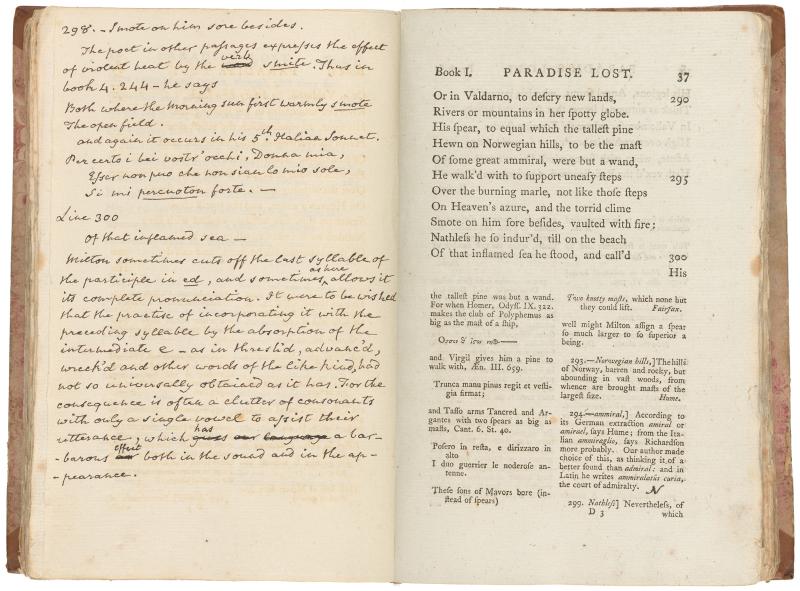 298. - Smote on him sore besides.
The poet in other passages expresses the effect
of violent heat by the verb smite. Thus in
book 4. 244 - he says
Both where the morning sun first warmly smote
The open field.
and again it occurs in his 5th. Italian Sonnet.
Per certo i bei vostr' occhi, Donna mia,
Esser non puo che non sian lo mio sole,
Si mi percuoton forte. -
Line 300
Of that inflamed sea -
Milton sometimes cuts off the last syllable of
the participle in ed, and sometimes, as here allows it
its complete pronunciation. It were to be wished
that the practise of incorporating it with the
preceding syllable by the absorption of the
intermediate e - as in thresh'd, advanc'd,
wreck'd and other words of the like kind, had
not so universally obtained as it has. For the
consequence is often a clutter of consonants
with only a single vowel to assist their
utterance, which has gives our language a bar-
-barous effect air both in the sound and in the ap-
-pearance.
Book I. PARADISE LOST. 37
Or in Valdarno, to deſcry new lands, 290
Rivers or mountains in her ſpotty globe.
His ſpear, to equal which the talleſt pine
Hewn on Norwegian hills, to be the maſt
Of ſome great ammiral, were but a wand,
He walk'd with to ſupport uneaſy ſteps 295
Over the burning marle, not like thoſe ſteps
On Heaven's azure, and the torrid clime
Smote on him ſore beſides, vaulted with fire;
Nathleſs he ſo indur'd, till on the beach
Of that inflamed ſea he ſtood, and call'd 300
His
the talleſt pine was but a wand.
For when Homer, Odyſſ. IX. 322.
makes the club of Polyphemus as
big as the maſt of a ſhip,
and Virgil gives him a pine to
walk with, Æn. III. 659.
Trunca manu pinus regit et veſti-
gia firmat;
and Taſſo arms Tancred and Ar-
gantes with two ſpears as big as
maſts, Cant. 6. St. 40.
Poſero in reſta, e dirizzaro in
alto
I duo guerrier le noderoſe an-
tenne.
Theſe ſons of Mavors bore (in-
ſtead of ſpears)
Two knotty maſts, which none but
they could lift. Fairfax.
well might Milton aſſign a ſpear
ſo much larger to ſo ſuperior a
being.
293.—Norwegian hills,] The hills
of Norway, barren and rocky, but
abounding in vaſt woods, from
whence are brought maſts of the
largeſt ſize. Hume.
294.—ammiral,] According to
its German extraction amiral or
amirael, ſays Hume; from the Ita-
lian ammiraglio, ſays Richardſon
more probably. Our author made
choice of this, as thinking it of a
better ſound than admiral: and in
Latin he writes ammiralatûs curia,
the court of admiralty. N
299. Nathleſs] Nevertheleſs, of
D 3 which